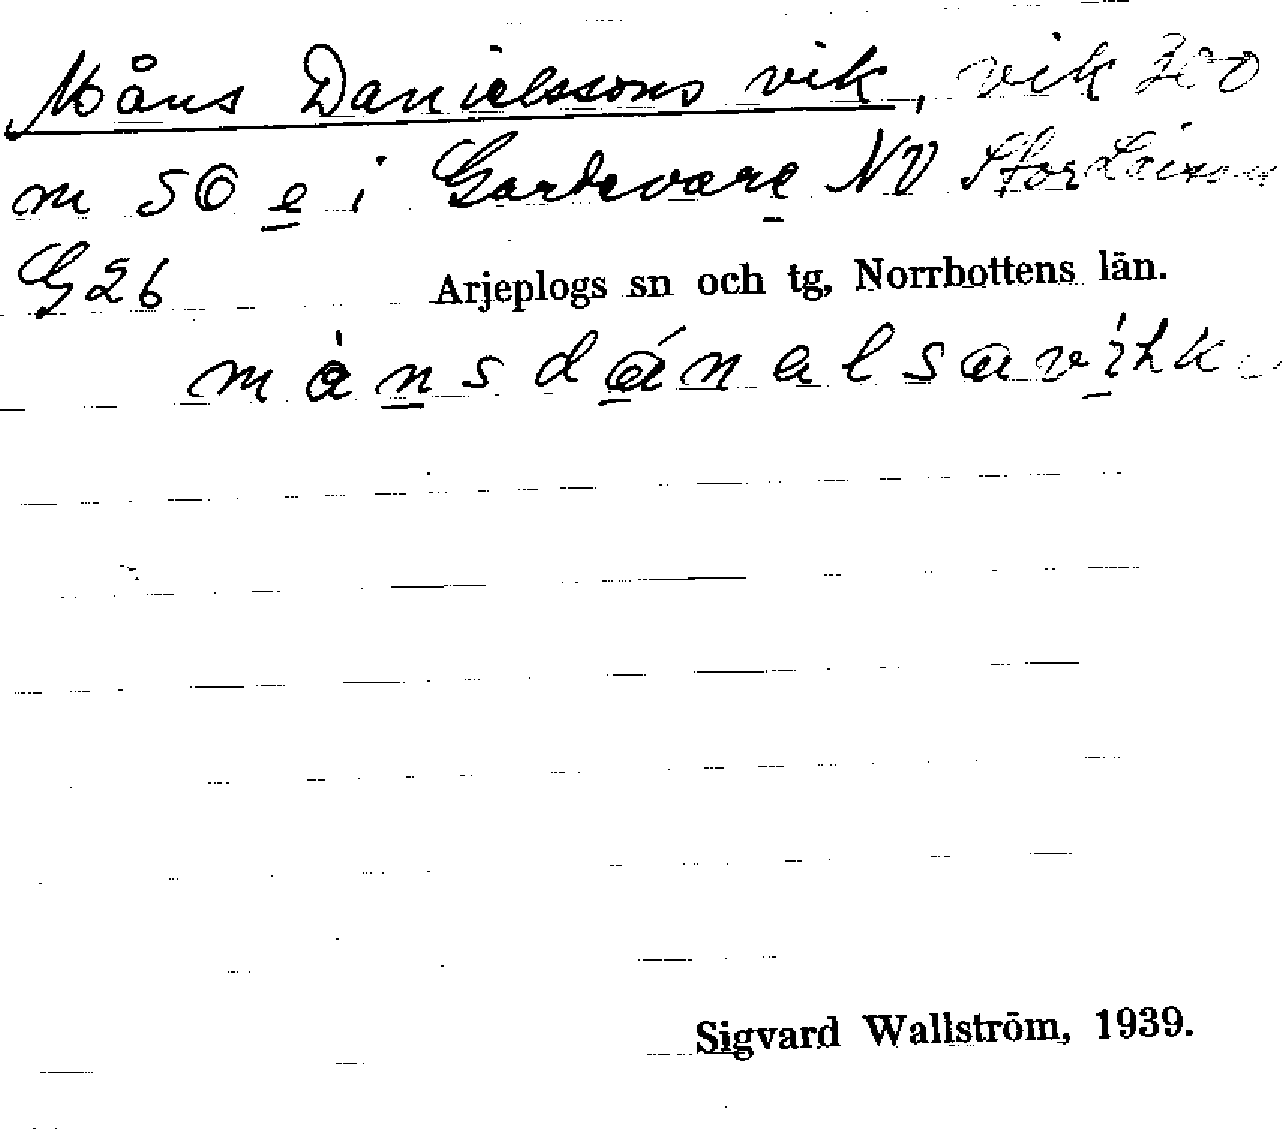 Måns Danielssons vik, vik 300
m SO e i Gardevare NV Stor Laisan
G26 Arjeplogs sn och tg, Norrbottens län.
månsdánalsavihk
Sigvard Wallström, 1939.